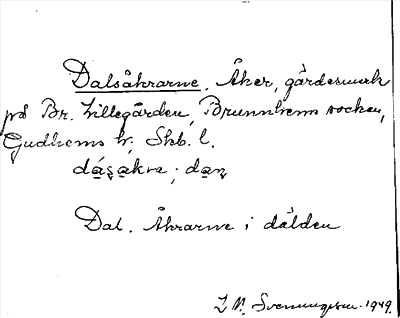 Dalsåkrarne. Åker, gärdesmark
på Br. Lillegården, Brunnhems socken,
Gudhems hd; Skb. l.
Dal. Åkrarne i dälden
Svenungsson. 1949.